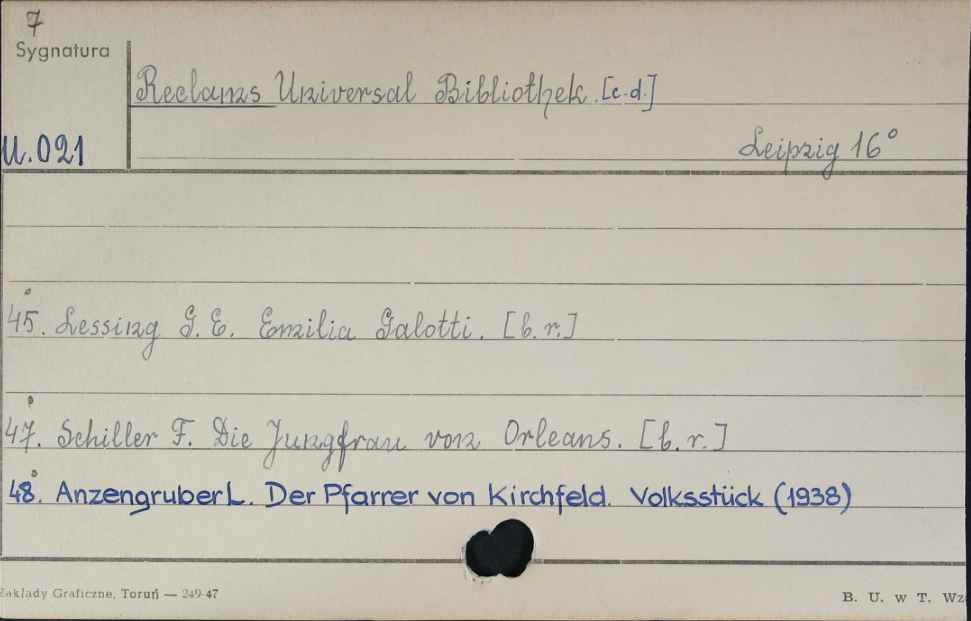 7
Sygnatura
Reclams Universal Bibliothek. [c.d.]
U.021
Leipzig 16°
45. Lessing G. E. Emilia Galotti. [b.r.]
47. Schiller F. Die Jungfrau von Orleans. [b.r.]
48. Anzengruber L. Der Pfarrer von Kirchfeld. Volksstück (1938)
Zakłady Graficzne, Toruń — 249-47
B. U. w T. Wz